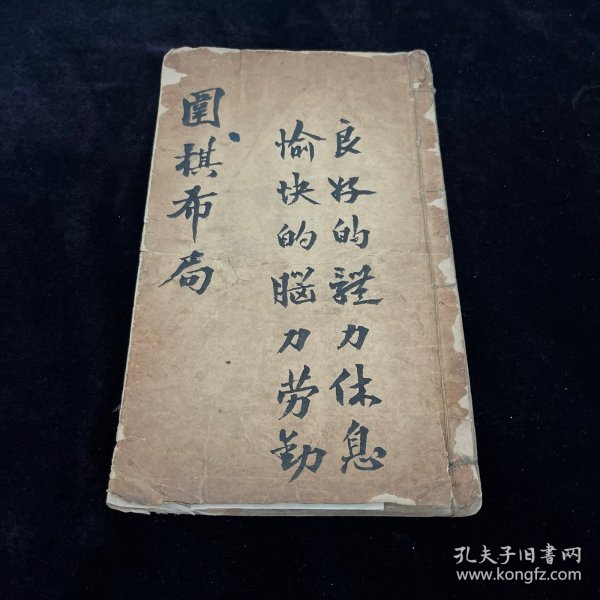 良好的體力休息
愉快的腦力劳動
圍棋布局
孔夫子旧書网
www.kongfz.com